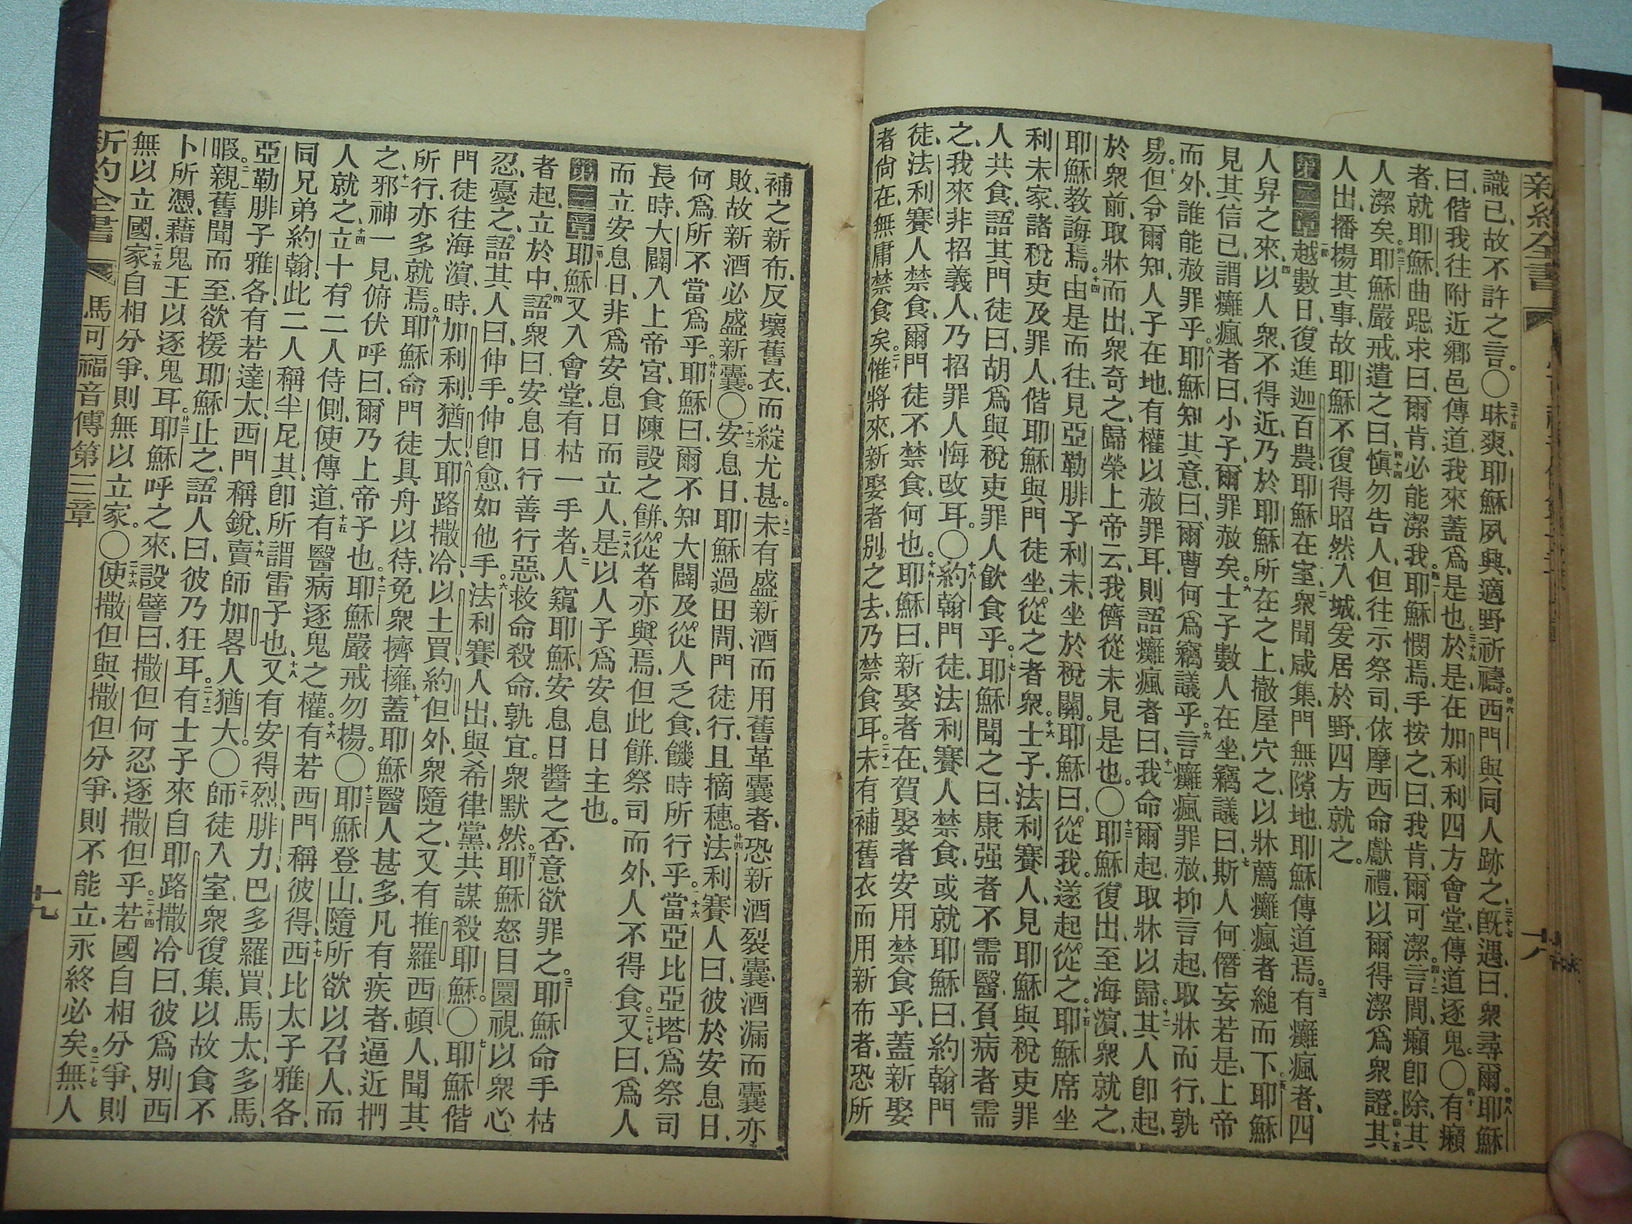 新約全書
十八
識己、故不許之言。〇昧爽、耶穌夙興、適野祈禱。西門與同人跡之、旣遇、曰、衆尋爾。耶穌
曰、偕我往附近鄉邑傳道、我來蓋爲是也、於是在加利利四方會堂傳道逐鬼。〇有癩
者、就耶穌曲跽求曰、爾肯、必能潔我、耶穌憫焉、手按之曰、我肯、爾可潔、言間癩卽除、其
人潔矣、耶穌嚴戒遣之曰、愼勿告人、但往示祭司、依摩西命獻禮、以爾得潔爲衆證、其
人出播揚其事、故耶穌不復得昭然入城、爰居於野、四方就之。
第二章越數日、復進迦百農、耶穌在室、衆聞咸集、門無隙地、耶穌傳道焉。有癱瘋者、四
人舁之來、以人衆、不得近、乃於耶穌所在之上、撤屋穴之、以牀薦癱瘋者縋而下、耶穌
見其信己、謂癱瘋者曰、小子、爾罪赦矣、士子數人在坐、竊議曰、斯人何僭妄若是、上帝
而外、誰能赦罪乎、耶穌知其意曰、爾曹何爲竊議乎、言癱瘋罪赦、抑言起取牀而行、孰
易、但令爾知、人子在地、有權以赦罪耳、則語癱瘋者曰、我命爾起、取牀以歸、其人卽起、
於衆前、取牀而出、衆奇之、歸榮上帝云、我儕從未見是也。〇耶穌復出至海濱、衆就之、
耶穌敎誨焉、由是而往、見亞勒腓子利未、坐於稅關、耶穌曰、從我、遂起從之、耶穌席坐
利未家、諸稅吏及罪人、偕耶穌與門徒坐、從之者衆、士子法利賽人、見耶穌與稅吏罪
人共食、語其門徒曰、胡爲與稅吏罪人飮食乎、耶穌聞之曰、康强者不需醫、負病者需
之、我來非招義人、乃招罪人悔改耳。〇約翰門徒、法利賽人禁食、或就耶穌曰、約翰門
徒、法利賽人禁食、爾門徒不禁食、何也、耶穌曰、新娶者在、賀娶者安用禁食乎、蓋新娶
者尙在、無庸禁食矣、惟將來新娶者別之去、乃禁食耳、未有補舊衣而用新布者、恐所
補之新布、反壞舊衣、而綻尤甚。未有盛新酒而用舊革囊者、恐新酒裂囊、酒漏而囊亦
敗、故新酒必盛新囊。〇安息日、耶穌過田間、門徒行、且摘穗、法利賽人曰、彼於安息日、
何爲所不當爲乎、耶穌曰、爾不知大闢及從人乏食饑時所行乎、當亞比亞塔爲祭司
長時、大闢入上帝宮、食陳設之餅、從者亦與焉、但此餅、祭司而外、人不得食、又曰、爲人
而立安息日、非爲安息日而立人、是以人子爲安息日主也。
第三章耶穌又入會堂、有枯一手者、人窺耶穌、安息日醫之否、意欲罪之、耶穌命手枯
者起、立於中、語衆曰、安息日行善行惡、救命殺命、孰宜。衆默然、耶穌怒目圜視、以衆心
忍、憂之、語其人曰、伸手。伸卽愈、如他手、法利賽人出、與希律黨、共謀殺耶穌。〇耶穌偕
門徒往海濱、時、加利利、猶太、耶路撒冷、以土買、約但外、衆隨之、又有推羅西頓人、聞其
所行、亦多就焉、耶穌命門徒具舟以待、免衆擠擁、蓋耶穌醫人甚多、凡有疾者、逼近捫
之、邪神一見、俯伏呼曰、爾乃上帝子也、耶穌嚴戒勿揚。〇耶穌登山、隨所欲以召人、而
人就之、立十有二人侍側、使傳道、有醫病逐鬼之權、有若西門稱彼得、西比太子雅各、
同兄弟約翰、此二人稱半尼其、卽所謂雷子也、又有安得烈、腓力、巴多羅買、馬太、多馬、
亞勒腓子雅各、有若達太、西門稱銳、賣師加畧人猶大。〇師徒入室、衆復集、以故食不
暇、親舊聞而至、欲援耶穌止之、語人曰、彼乃狂耳、有士子來自耶路撒冷曰、彼爲別西
卜所憑、藉鬼王以逐鬼耳、耶穌呼之來、設譬曰、撒但何忍逐撒但乎、若國自相分爭、則
無以立國、家自相分爭、則無以立家。〇使撒但與撒但分爭、則不能立、永終必矣、無人
新約全書
馬可福音傳第三章
十九